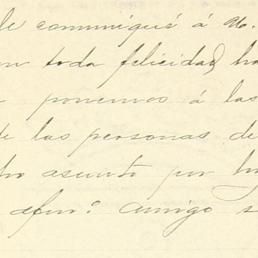 le comuniqué á V.
toda felicidad, ha
ponemos á las
de las personas de
asunto por h
afmo. amigo s